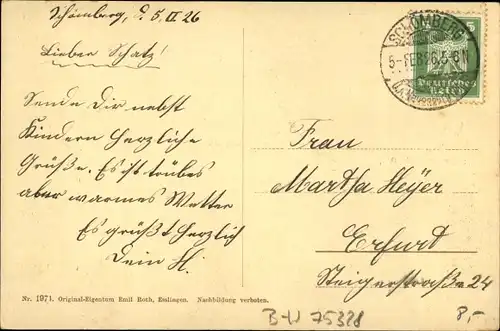 Schömberg, d. 5.II.26
Lieber Schatz!
Sende Dir nebst
Kindern herzliche
Grüße. Es ist trübes
aber warmes Wetter
Es grüßt herzlich
Dein H.
SCHÖMBERG
5-FEB 26, 5-6 N
Deutsches
Reich
5
Frau
Martha Heyer
Erfurt
Steigerstraße 24
Nr. 1971. Original-Eigentum Emil Roth, Esslingen. Nachbildung verboten.
B-W 75328
8,-